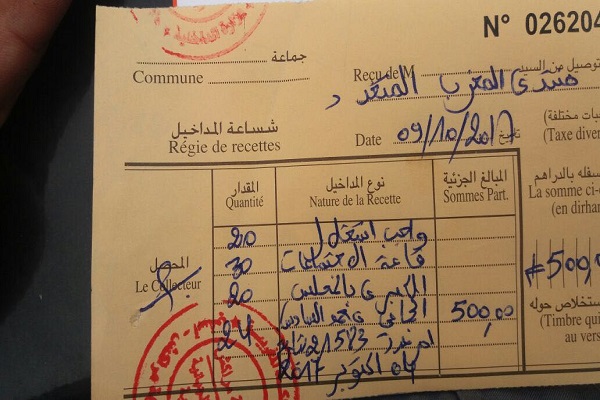 N° 026204
جماعة
Commune
توصيل من السيد
Reçu de M
منتدى المغرب المتعدد
شساعة المداخيل
Régie de recettes
Date 09/10/2017 تاريخ
(Taxe diver
المقدار
Quantité
نوع المداخيل
Nature de la Recette
المبالغ الجزئية
Sommes Part.
سفله بالدراهم
La somme ci-
(en dirhar
المحصل
Le Collecteur
20 واجب استغلال
30 قاعة الاجتماعات
20 الكبرى بالمجلس
الجماعي محمد السادس
500,00
24
أكتوبر 2017
#500,0
ستخلاص حوله
(Timbre qui
au vers